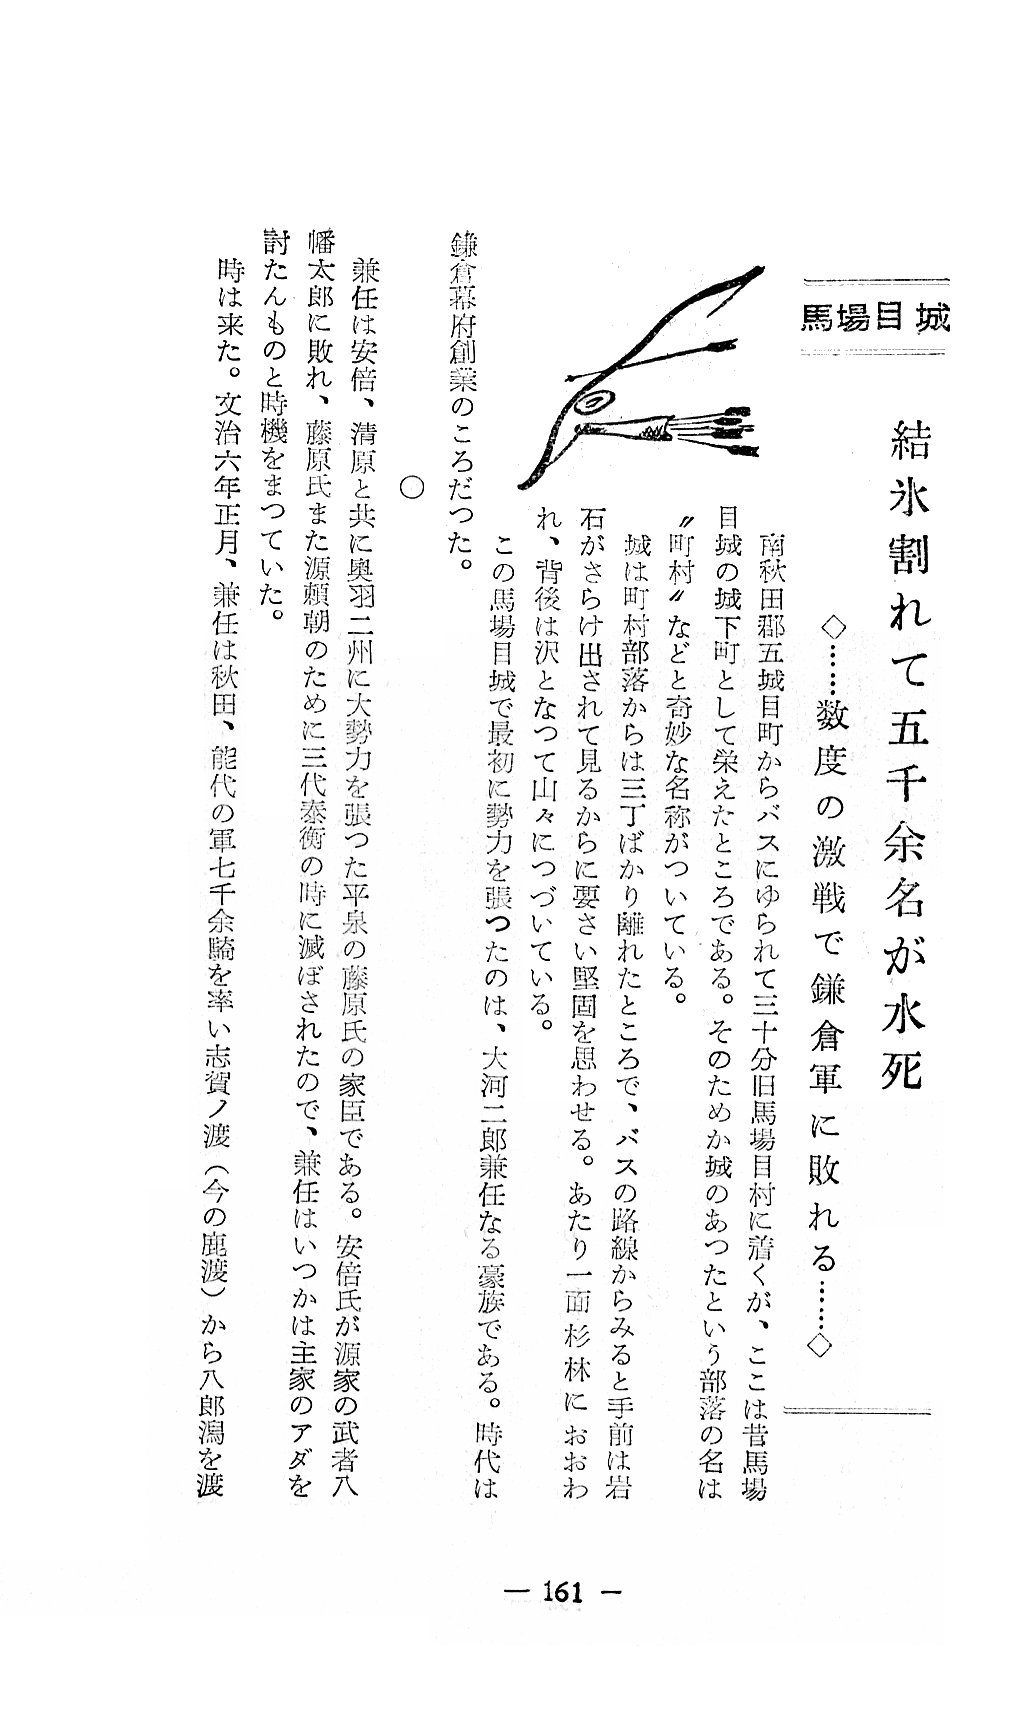 馬場目城
結氷割れて五千余名が水死
◇……数度の激戦で鎌倉軍に敗れる……◇
南秋田郡五城目町からバスにゆられて三十分旧馬場目村に着くが、ここは昔馬場
目城の城下町として栄えたところである。そのためか城のあつたという部落の名は
〃町村〃などと奇妙な名称がついている。
城は町村部落からは三丁ばかり離れたところで、バスの路線からみると手前は岩
石がさらけ出されて見るからに要さい堅固を思わせる。あたり一面杉林におおわ
れ、背後は沢となつて山々につづいている。
この馬場目城で最初に勢力を張つたのは、大河二郎兼任なる豪族である。時代は
鎌倉幕府創業のころだつた。
○
兼任は安倍、清原と共に奥羽二州に大勢力を張つた平泉の藤原氏の家臣である。安倍氏が源家の武者八
幡太郎に敗れ、藤原氏また源頼朝のために三代泰衡の時に滅ぼされたので、兼任はいつかは主家のアダを
討たんものと時機をまつていた。
時は来た。文治六年正月、兼任は秋田、能代の軍七千余騎を率い志賀ノ渡（今の鹿渡）から八郎潟を渡
— 161 —